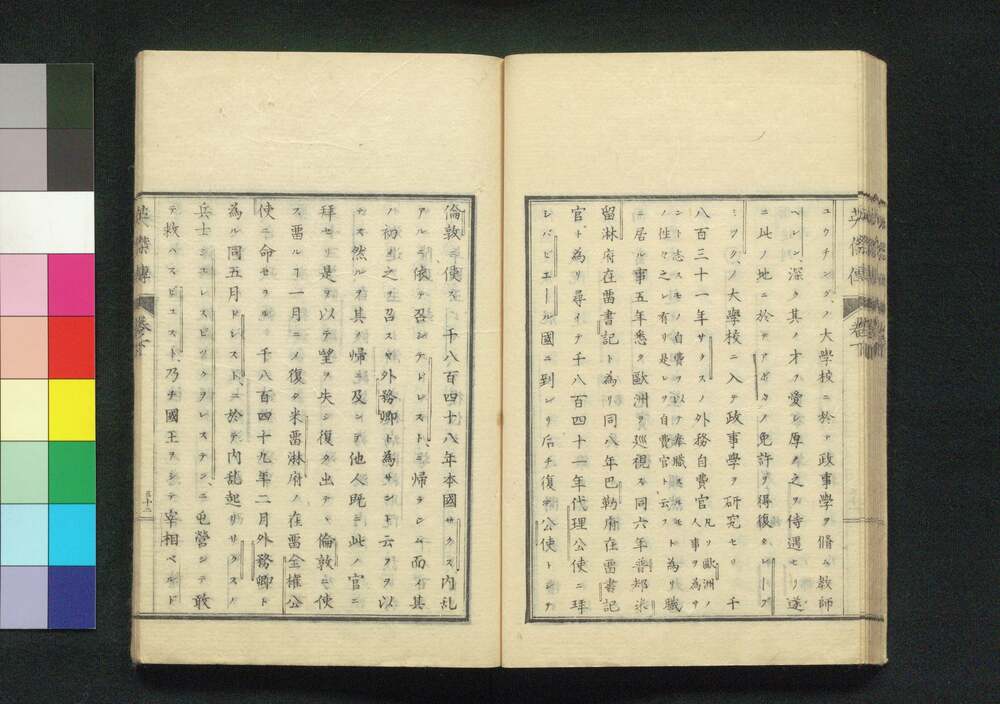 ユウチンゲノ大學校ニ於テ政事學ヲ脩ム教師
ヘレン深ク其ノ才ヲ愛シ厚ク之ヲ待遇セリ遂
ニ此ノ地ニ於テ免許ヲ得復タレープ
ノ大學校ニ入テ政事學ヲ研究セリ千
八百三十一年サクスノ外務自費官
凡ソ歐洲ノ人事ヲ為サ
ント志スモノ自費ヲ以テ奉職スルモト為リ職
ノ性々之レ有リ是レヲ自費官ト云フ
ニ居ル事五年悉ク歐洲ヲ巡視ス同六年普都
留淋府在畱書記ト為リ同八年巴勒府在畱書記
官ト為リ尋イテ千八百四十一年代理公使ニ拜
シバビエール國ニ到レリ后チ復タ公使トシテ
英傑傳 卷下
倫敦ニ使ス千八百四十八年本國サクス内乱
アルニ依テ召シテドレストニ帰ラシム而イ其
ノ初メ之ヲ召スヤ外務卿ト為サント云フヲ以
テス然ルニ其ノ帰ルニ及ンテ他人既ニ此ノ官ニ
拜セリ是ヲ以テ望ヲ失シ復タ出テ倫敦ニ使
ス畱ルヿ一月ニノ復タ米畱淋府ノ在畱全權公
使ニ命セラル千八百四十九年二月外務卿ト
為ル同五月ドレストニ於テ内乱起リサクスノ
兵士ニエレスピックヲレステンニ屯營シテ敢
テ救ハスビュスト乃チ國王ヲシテ宰相ベルド
英傑傳 卷下
五十三